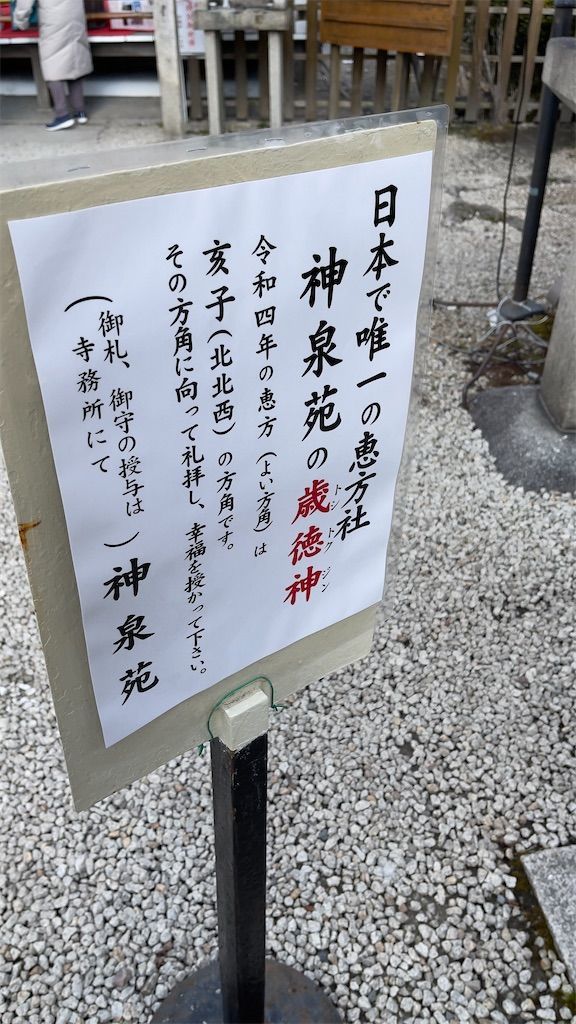 日本で唯一の恵方社
神泉苑の歳徳神
トシトクジン
令和四年の恵方(よい方角)は
亥子(北北西)の方角です。
その方角に向って礼拝し、幸福を授かって下さい。
(御札、御守の授与は
寺務所にて)
神泉苑